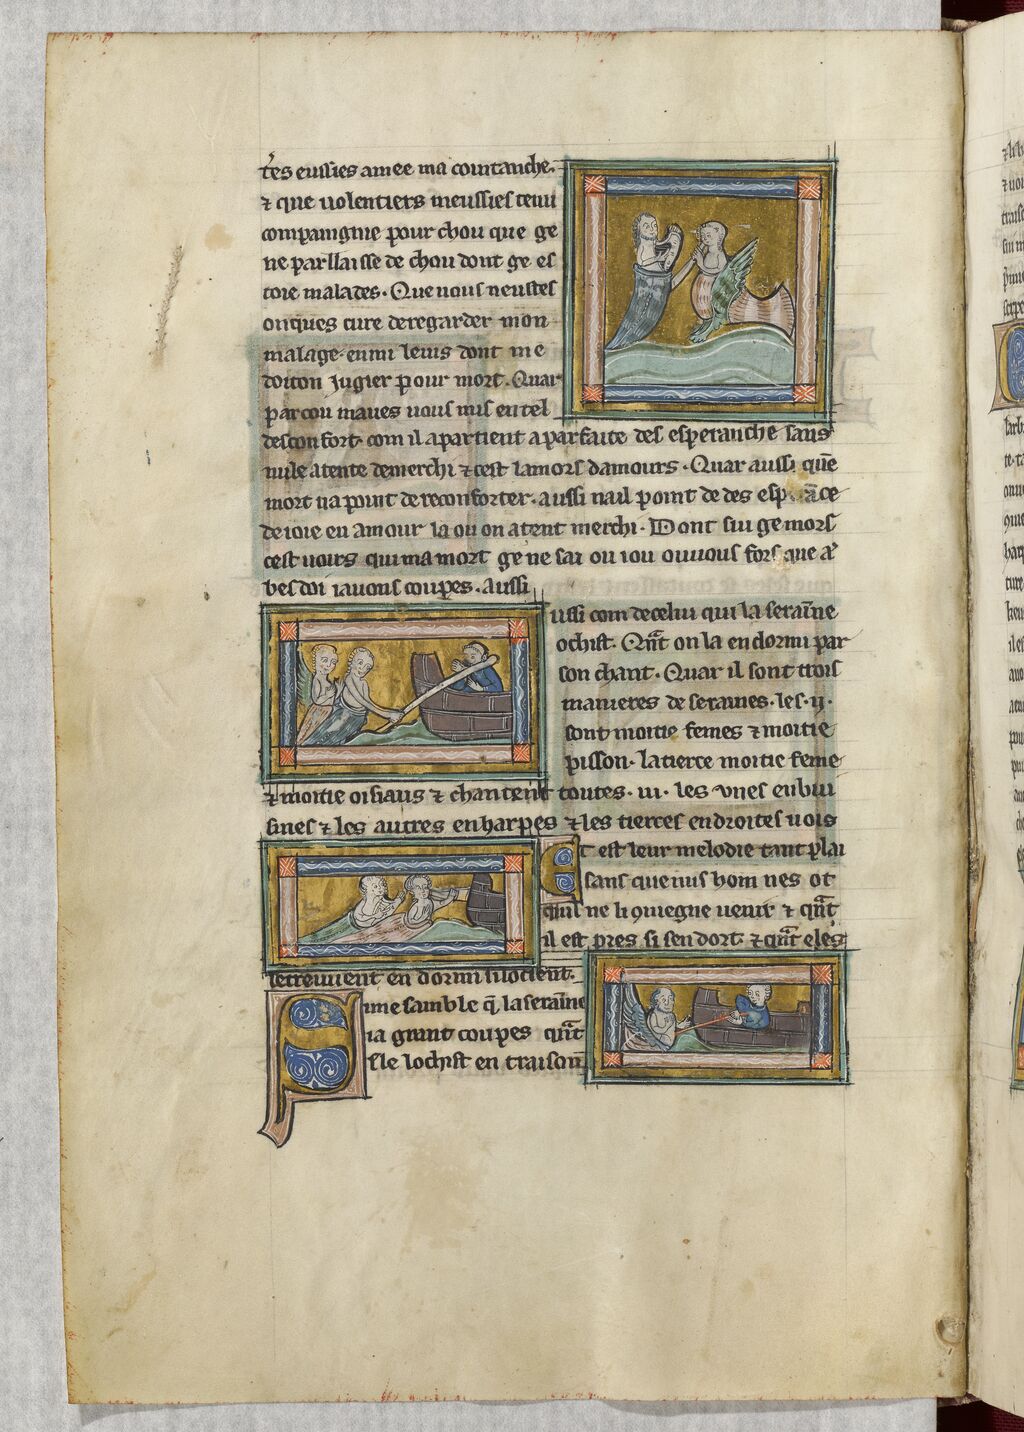 tes eussies amee ma compaignie.
⁊ que uolentiers meussies tenu
compaingnie pour chou que ge
ne parllaisse de chou dont ge es
toie malades. Que uous neustes
onques cure deregarder mon
malage. enmi leuis dont me
doiton jugier pour mort. Quar
parcou maues uous mis entel
desconfort com il apartient aparfaite des esperanche sans
nule atente demerchi ⁊ cest lamors damours. Quar aussi que
mort na point dereconforter. aussi nail point de des esp ce
deioie en amour la ou on atent merchi. Dont sui ge mors
cest uoirs qui ma mort ge ne sai ou iou ou uous fors que
bes doi iauons coupes. aussi
ussi com decelui qui la seraine
ochist. Qñt on la endormi par
son chant. Quar il sont trois
manieres de seraines. les .ij.
sont moitie femes ⁊ moitie
pisson. latierce moitie feme
⁊ moitie oisiaus ⁊ chantent toutes .iii. les vnes enbui
sines ⁊ les autres enharpes ⁊ les tierces endroites uois
Et est leur melodie tant plai
sans que nus hom nes ot
quil ne li ꝯuiegne uenir ⁊ qñt
il est pres si sendort. ⁊ qñt eles
letreuuent en dormi silocient.
Si me samble q̄ la seraine
ia grant coupes qñt
ele lochist en traison